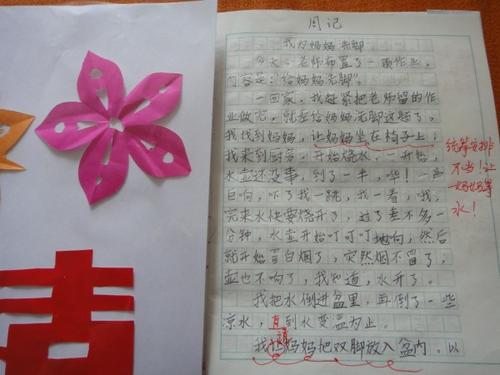 周记
我为妈妈洗脚
今天,老师布置了一项作业,
内容是:"给妈妈洗脚"。
一回家,我赶紧把老师留的作
业做完,就差给妈妈洗脚这题了,
我找到妈妈,让妈妈坐在椅子上,
我来到厨房,开始烧水,一开始,
水壶还没事,到了一半,啪!一声
巨响,吓了我一跳,我一看,哦,
完来水快要烧开了,过了差不多一
分钟,水壶开始叮叮叮地响,然后
就开始冒白烟了,突然烟不冒了,
壶也不响了,我知道,水开了。
我把水倒进盆里,再倒了一些
凉水,直到水变温为止。
我让妈妈把双脚放入盆内,以
统筹安排
不当!让
妈妈等
水!